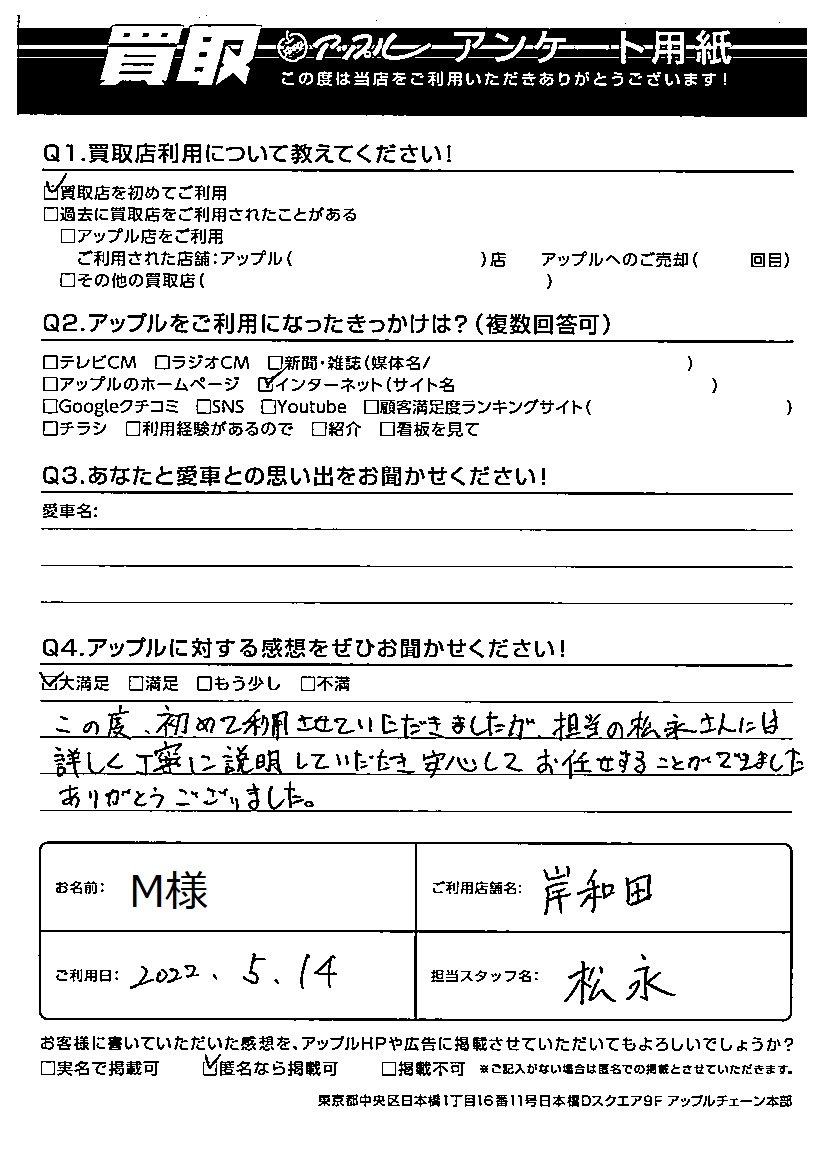 買取 アップル アンケート用紙
この度は当店をご利用いただきありがとうございます!
Q1.買取店利用について教えてください!
☑買取店を初めてご利用
□過去に買取店をご利用されたことがある
□アップル店をご利用
ご利用された店舗:アップル( )店 アップルへのご売却( 回目)
□その他の買取店( )
Q2.アップルをご利用になったきっかけは?(複数回答可)
□テレビCM □ラジオCM □新聞・雑誌(媒体名/ )
□アップルのホームページ ☑インターネット(サイト名 )
□Googleクチコミ □SNS □Youtube □顧客満足度ランキングサイト( )
□チラシ □利用経験があるので □紹介 □看板を見て
Q3.あなたと愛車との思い出をお聞かせください!
愛車名:
Q4.アップルに対する感想をぜひお聞かせください!
☑大満足 □満足 □もう少し □不満
この度、初めて利用させていただきましたが、担当の松永さんには
詳しく丁寧に説明していただき安心してお任せすることができました
ありがとうございました。
お名前: M様 ご利用店舗名: 岸和田
ご利用日: 2022.5.14 担当スタッフ名: 松永
お客様に書いていただいた感想を、アップルHPや広告に掲載させていただいてもよろしいでしょうか?
□実名で掲載可 ☑匿名なら掲載可 □掲載不可 ※ご記入がない場合は匿名での掲載とさせていただきます。
東京都中央区日本橋1丁目16番11号日本橋Dスクエア9F アップルチェーン本部